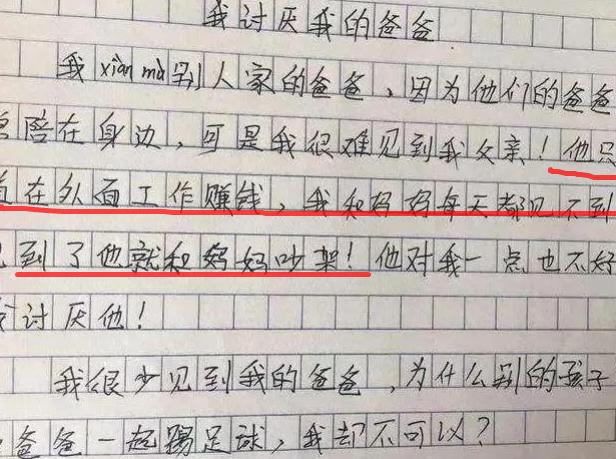 我讨厌我的爸爸
我 xiàn mù 别人家的爸爸，因为他们的爸爸
陪在身边，可是我很难见到我父亲！他只
在外面工作赚钱，我和妈妈每天都见不到
到了他就和妈妈吵架！他对我一点也不好
讨厌他！
我很少见到我的爸爸，为什么别的孩子
爸爸一起踢足球，我却不可以？